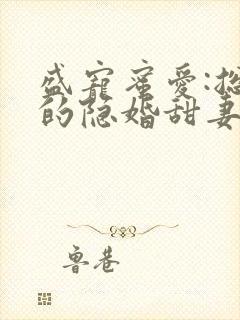 盛宠蜜爱:总
的隐婚甜妻
鲁巷